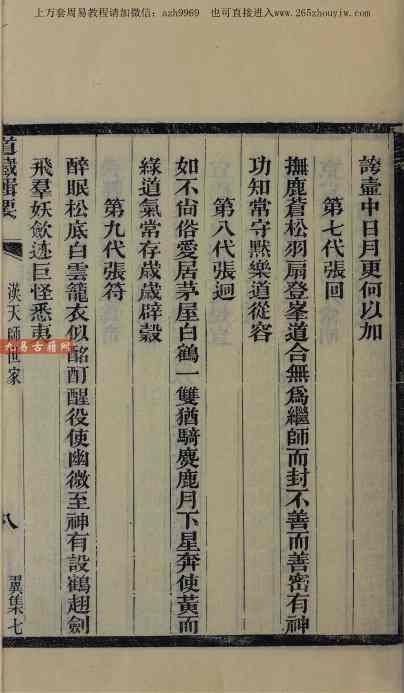 上万套周易教程请加微信：azh9969 也可直接进入www.265zhouyiw.com
誇壺中日月更何以加
第七代張回
撫鹿蒼松羽扇登峯道合無爲繼師而封不善而善密有神
功知常守默樂道從容
第八代張迥
如不尙俗愛居茅屋白鶴一雙猶騎麋鹿月下星奔使黃而
綠道氣常存歲歲辟穀
第九代張符
醉眠松底白雲籠衣似酩酊醒役使幽微至神有設鶴趐劍
飛羣妖歛迹巨怪悉夷
道藏輯要
漢天師世家
八
翼集七
九易古籍网